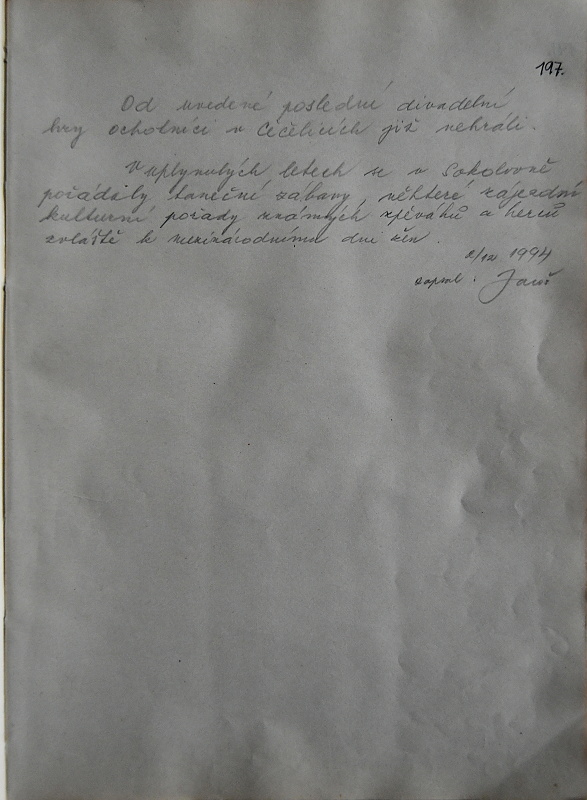 197.
Od uvedené poslední divadelní
hry ochotníci v Čečelicích již nehráli.
V uplynulých letech se v Sokolovně
pořádaly taneční zábavy, některé zájezdní
kulturní pořady známých zpěváků a herců
zvláště k mezinárodnímu dni žen.
1994
zapsal.